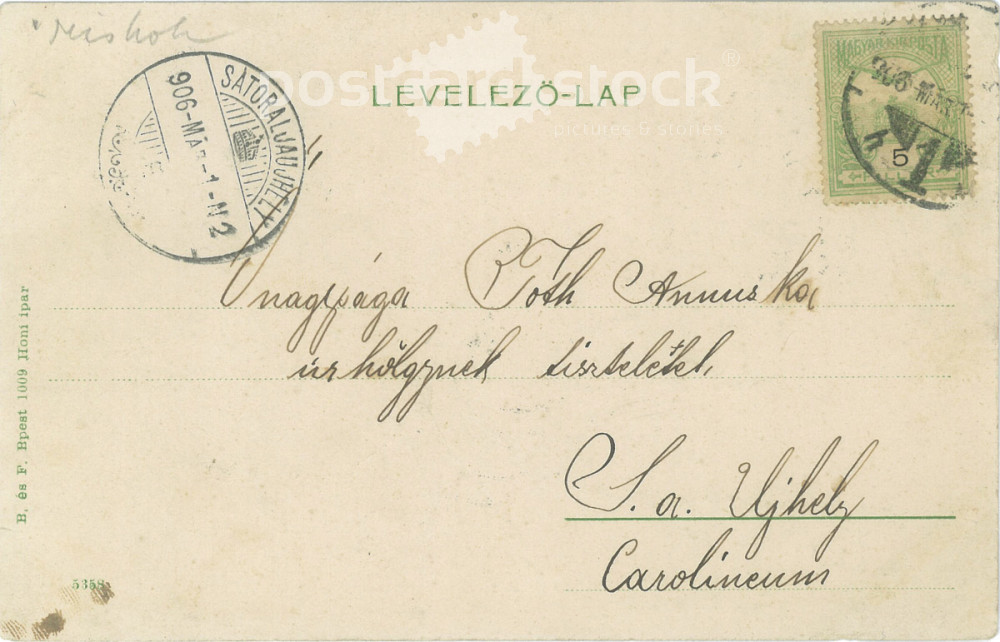 Miskolc
SÁTORALJAÚJHELY
906-MÁR-1-N2
postcardstock®
pictures & stories
LEVELEZŐ-LAP
MAGYAR KIR. POSTA
906-MÁR
5
Nagysága Tóth Annuska
úrhölgynek tisztelétel.
S. a. Ujhely
Carolineum
B. és F. Bpest 1009 Honi ipar
5358